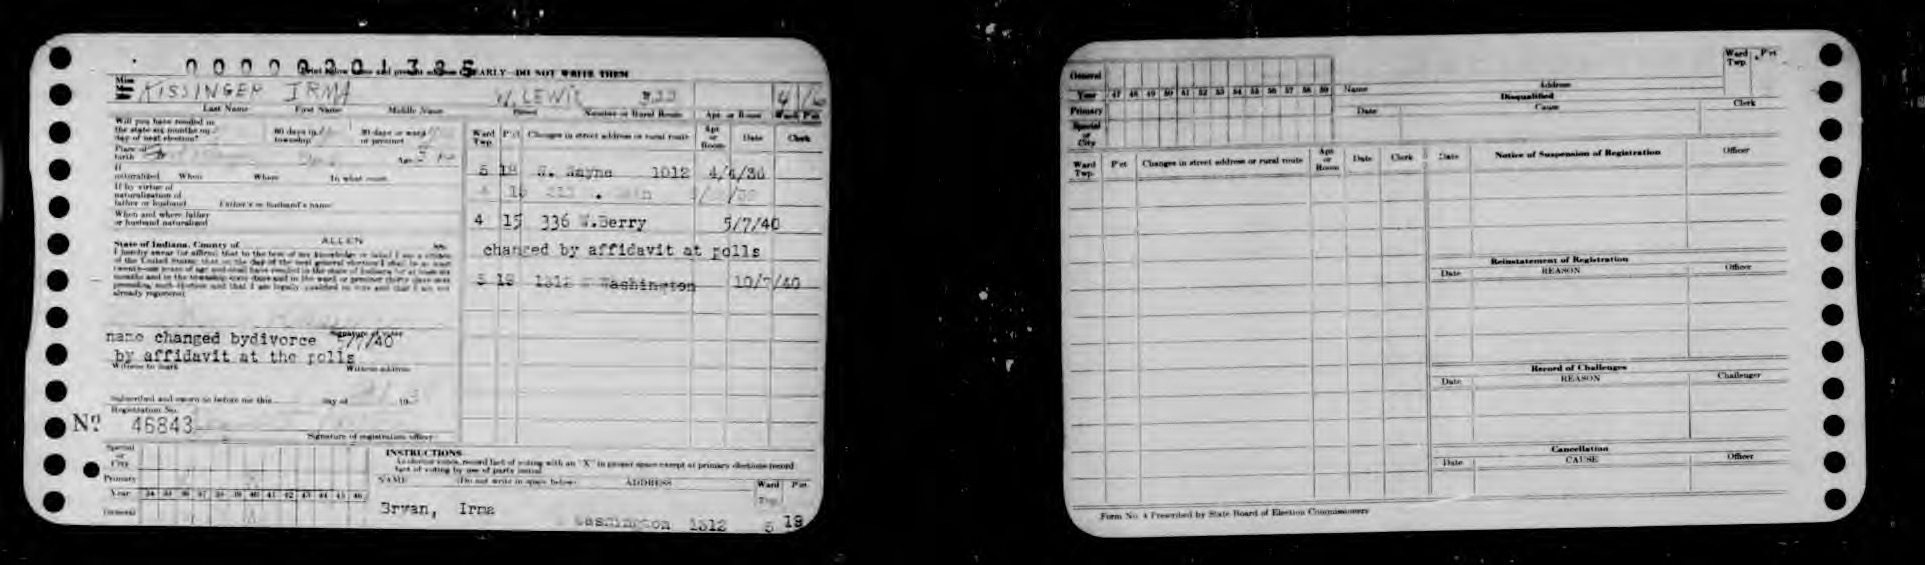 0000000201385
EARLY—DO NOT WRITE THEM
Miss
KISSINGER IRMA W. LEWIS 333 4 16
Last Name First Name Middle Name Street Number or Rural Route Apt. or Room Ward Pct.
Will you have resided in
the state six months on
day of next election?
60 days in
township
30 days or ward
or precinct
Place of
birth
Age
If
naturalized When Where In what court
If by virtue of
naturalization of
father or husband Father's or husband's name
When and where father
or husband naturalized
State of Indiana, County of ALLEN ss:
I hereby swear (or affirm) that to the best of my knowledge or belief I am a citizen
of the United States; that on the day of the next general election I shall be at least
twenty-one years of age and shall have resided in the state of Indiana for at least six
months and in the township sixty days and in the ward or precinct thirty days next
preceding such election and that I am legally qualified to vote and that I am not
already registered.
Signature of voter
name changed bydivorce 5/7/40
by affidavit at the polls
Witness to mark Witness address
Subscribed and sworn to before me this day of 193
Registration No.
No 46843
Signature of registration officer
Ward
Twp. Pct. Changes in street address or rural route Apt.
or
Room Date Clerk
5 19 W. Wayne 1012 4/4/36
4 15 336 W.Berry 5/7/40
changed by affidavit at polls
5 19 1312 W Washington 10/7/40
Special
or
City
Primary
Year 34 35 36 37 38 39 40 41 42 43 44 45 46
General
INSTRUCTIONS
As elector votes, record fact of voting with an "X" in proper space except at primary elections record
fact of voting by use of party initial
NAME (Do not write in space below) ADDRESS Ward
Twp. Pct.
Bryan, Irma
Washington 1312 5 19
General
Year 47 48 49 50 51 52 53 54 55 56 57 58 59
Primary
Special
or
City
Name Address Ward
Twp. Pct.
Disqualified
Date Cause Clerk
Ward
Twp. Pct. Changes in street address or rural route Apt.
or
Room Date Clerk
Date Notice of Suspension of Registration Officer
Reinstatement of Registration
Date REASON Officer
Record of Challenges
Date REASON Challenger
Cancellation
Date CAUSE Officer
Form No. 4 Prescribed by State Board of Election Commissioners